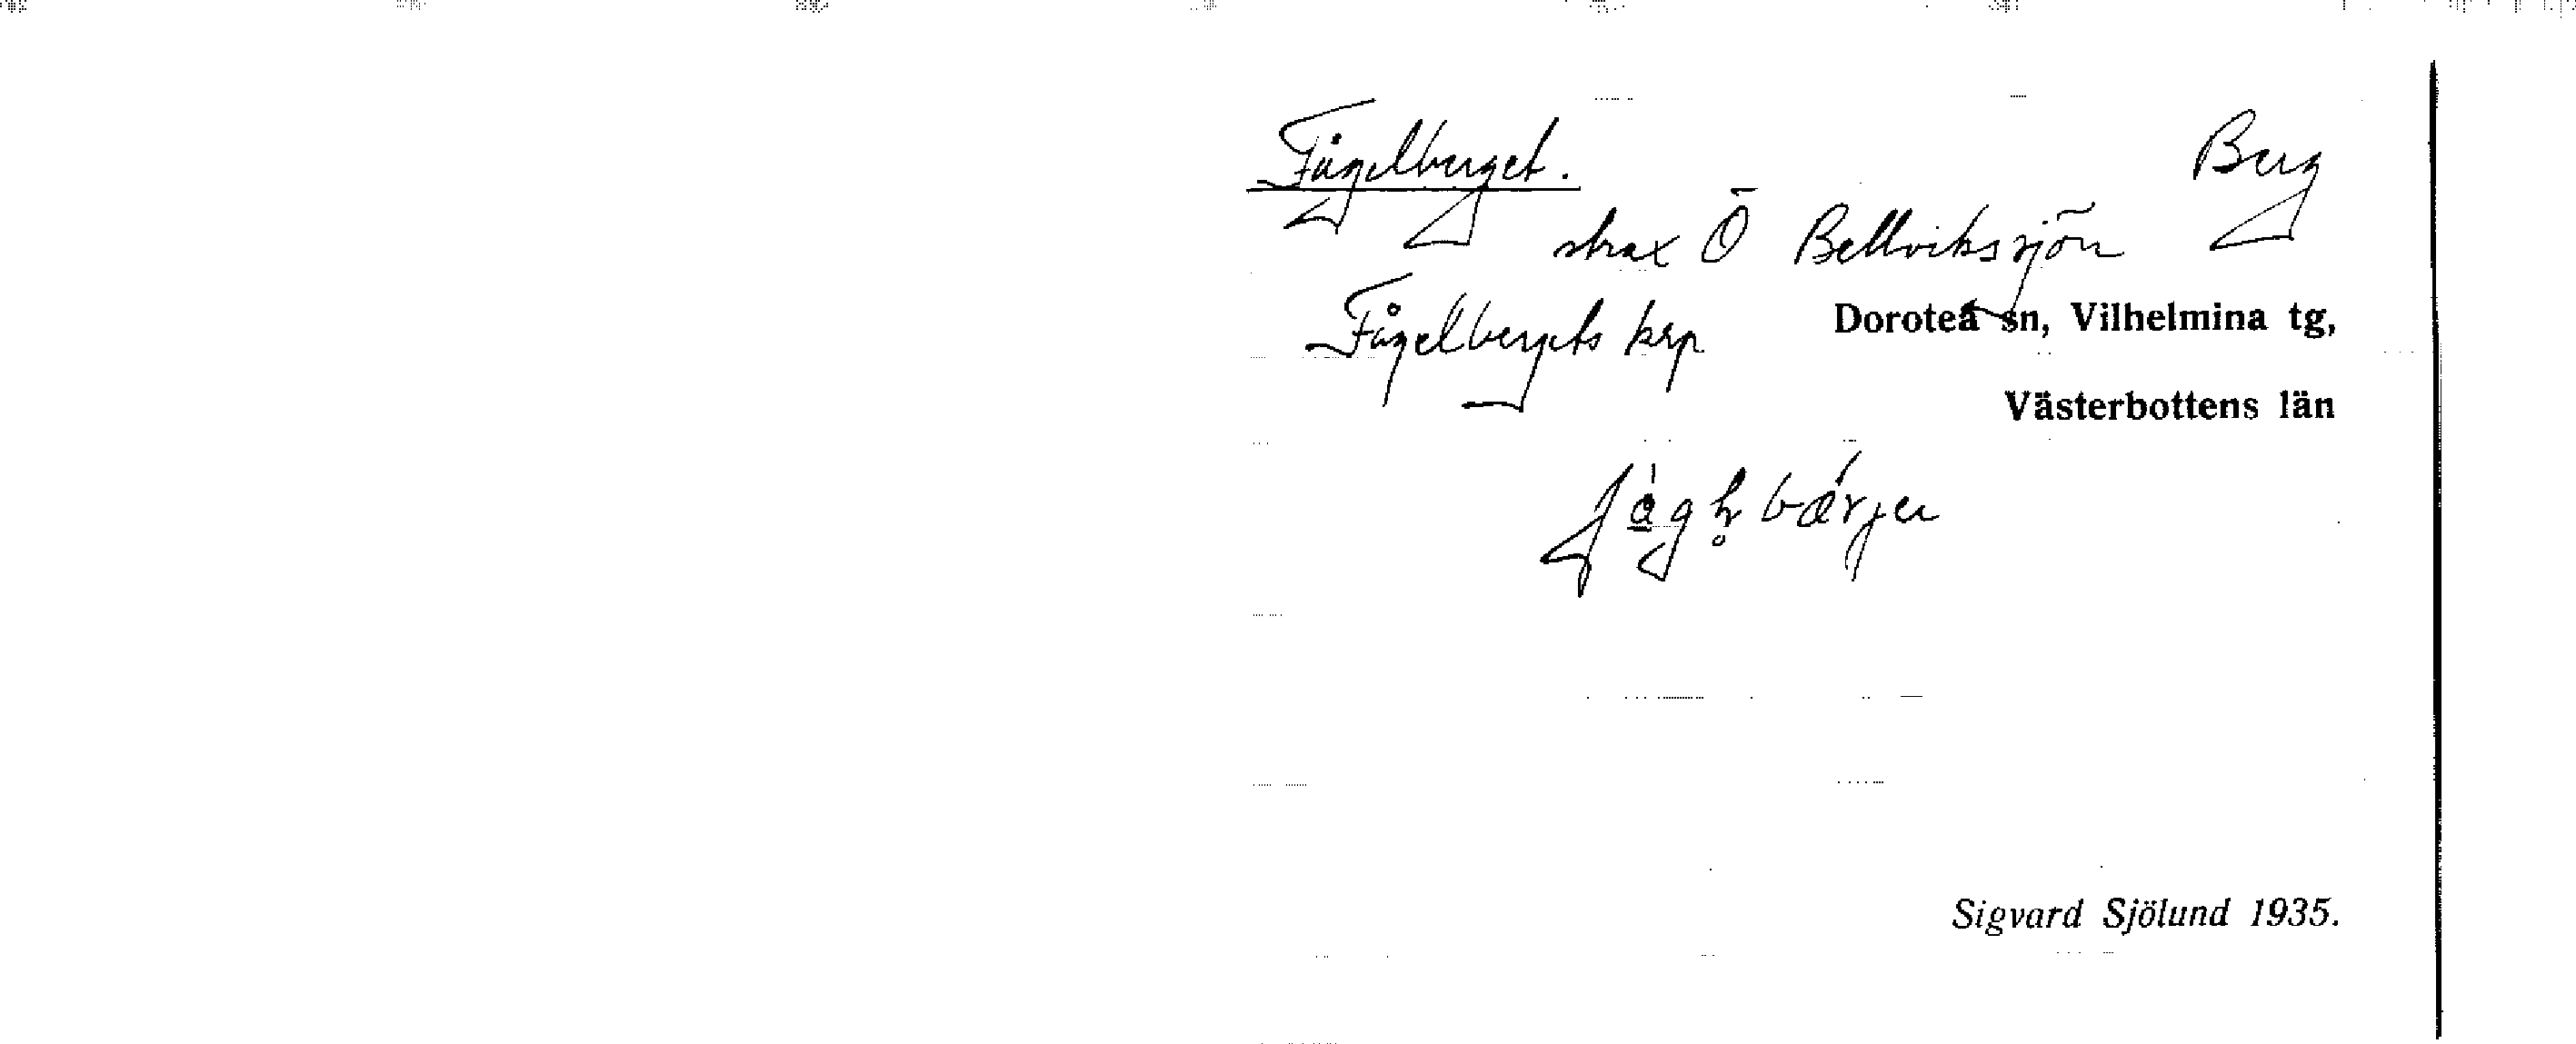 Fågelberget. Berg
strax Ö Bellvikssjön
Fågelbergets krp Dorotea sn, Vilhelmina tg,
Västerbottens län
Sigvard Sjölund 1935.